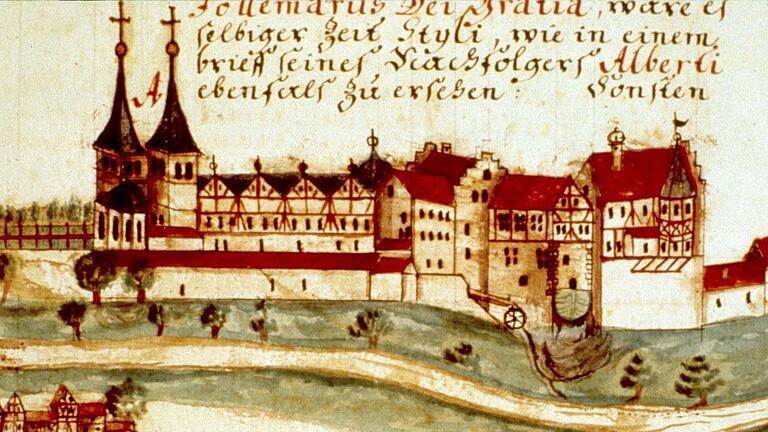 Follemarus Dei Gratia, ware es
selbiger Zeit Styli, wie in einem
brieff seines Nachfolgers Alberti
ebenfals zu ersehen: Sonsten
A